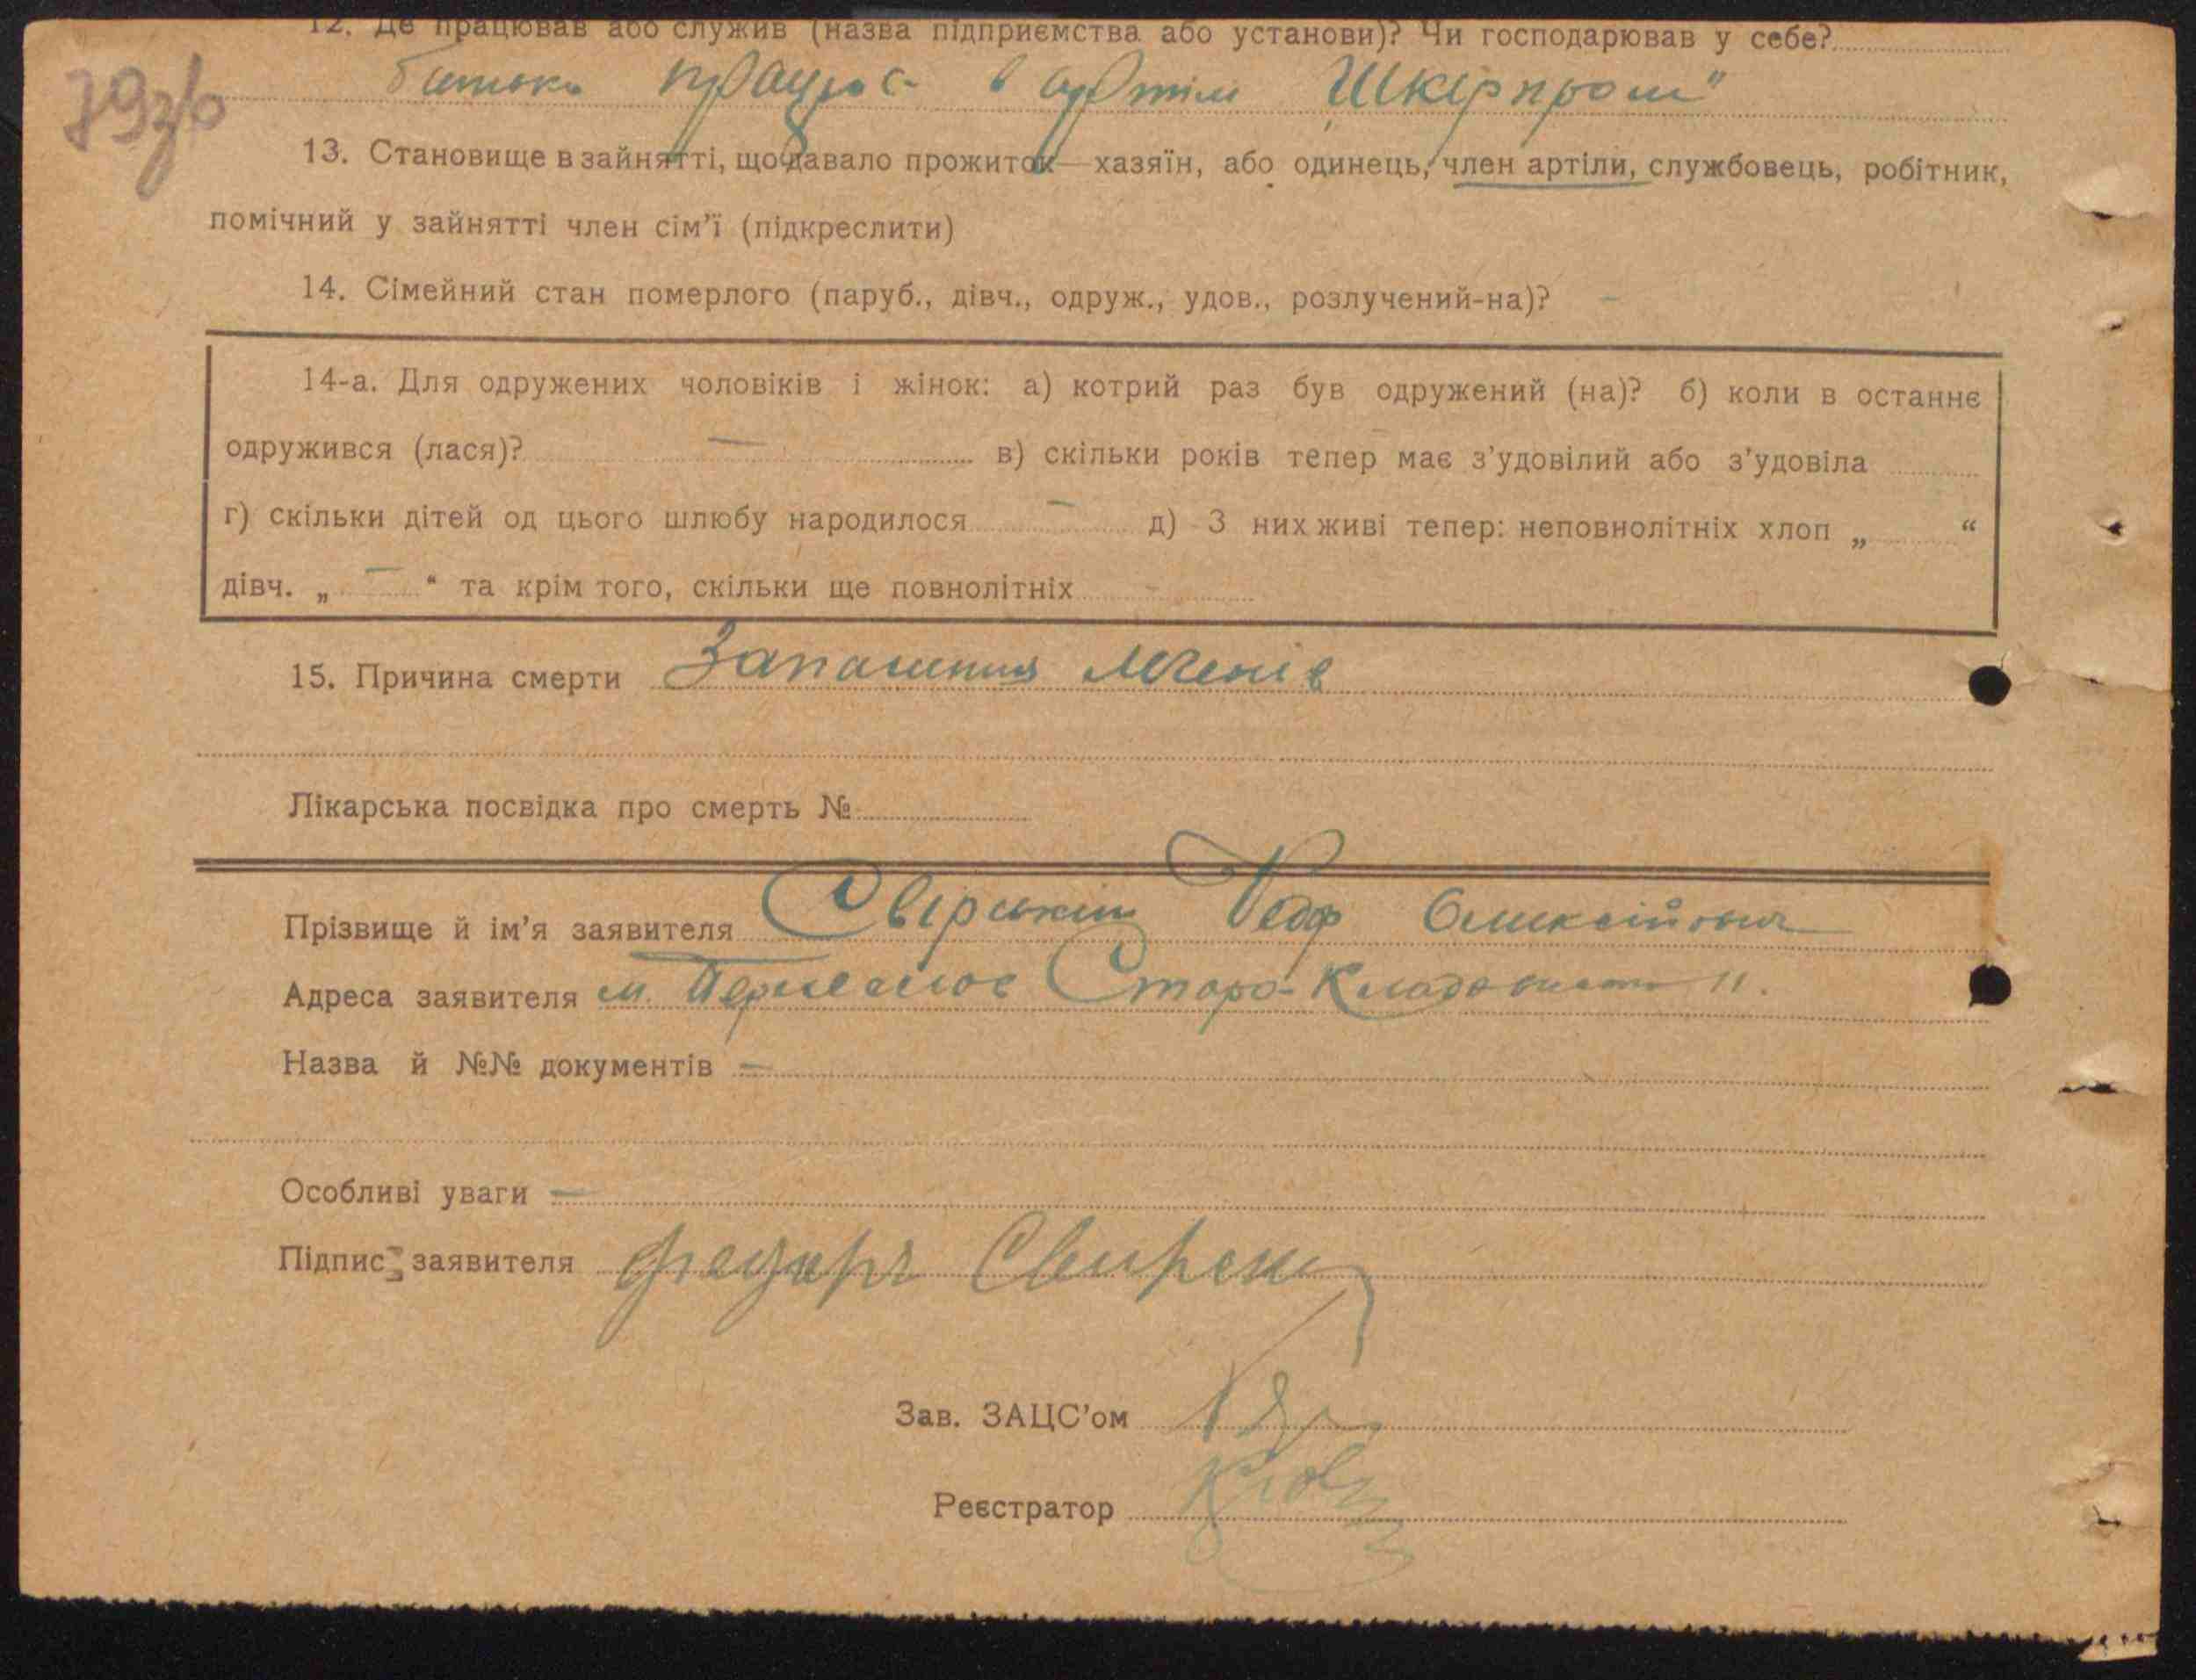 12. Де працював або служив (назва підприємства або установи)? Чи господарював у себе?
79зв
батько працює в артіли "Шкірпром"
13. Становище в зайнятті, що давало прожиток — хазяїн, або одинець, член артіли, службовець, робітник,
помічний у зайнятті член сім'ї (підкреслити)
14. Сімейний стан померлого (паруб., дівч., одруж., удов., розлучений-на)? —
14-а. Для одружених чоловіків і жінок: а) котрий раз був одружений (на)? б) коли в останнє
одружився (лася)? — в) скільки років тепер має з'удовілий або з'удовіла
г) скільки дітей од цього шлюбу народилося — д) З них живі тепер: неповнолітніх хлоп „ “
дівч. „ — “ та крім того, скільки ще повнолітніх -
15. Причина смерти Запалення легенів
Лікарська посвідка про смерть №
Прізвище й ім'я заявителя Свірський Олексійович
Адреса заявителя м. Старо- 11.
Назва й №№ документів —
Особливі уваги —
Підпис заявителя
Зав. ЗАЦС'ом
Реєстратор